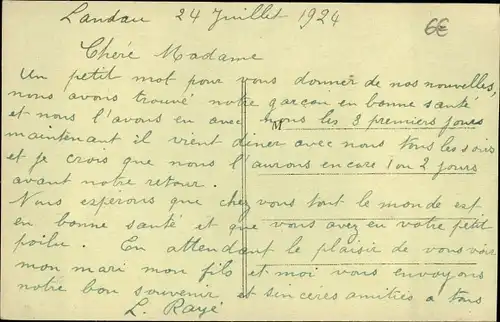 Landau 24 Juillet 1924
6€
Cheré Madame
Un petit mot pour vous donner de nos nouvelles,
nous avons trouvé notre garçon en bonne santé
et nous l'avons eu avec nous les 3 premiers jours
M
maintenant il vient diner avec nous tous les soirs
et je crois que nous l'aurons encore 1 ou 2 jours
avant notre retour.
Nous espérons que chez vous tout le monde est
en bonne santé et que vous avez eu votre petit
poilu. En attendant le plaisir de vous voir
mon mari mon fils et moi vous envoyons
notre bon souvenir et sinceres amitiés a tous
L. Raye